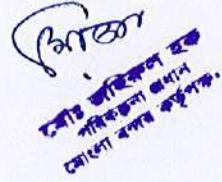 মোঃ জহিরুল হক
পরিকল্পনা প্রধান
মোংলা বন্দর কর্তৃপক্ষ.